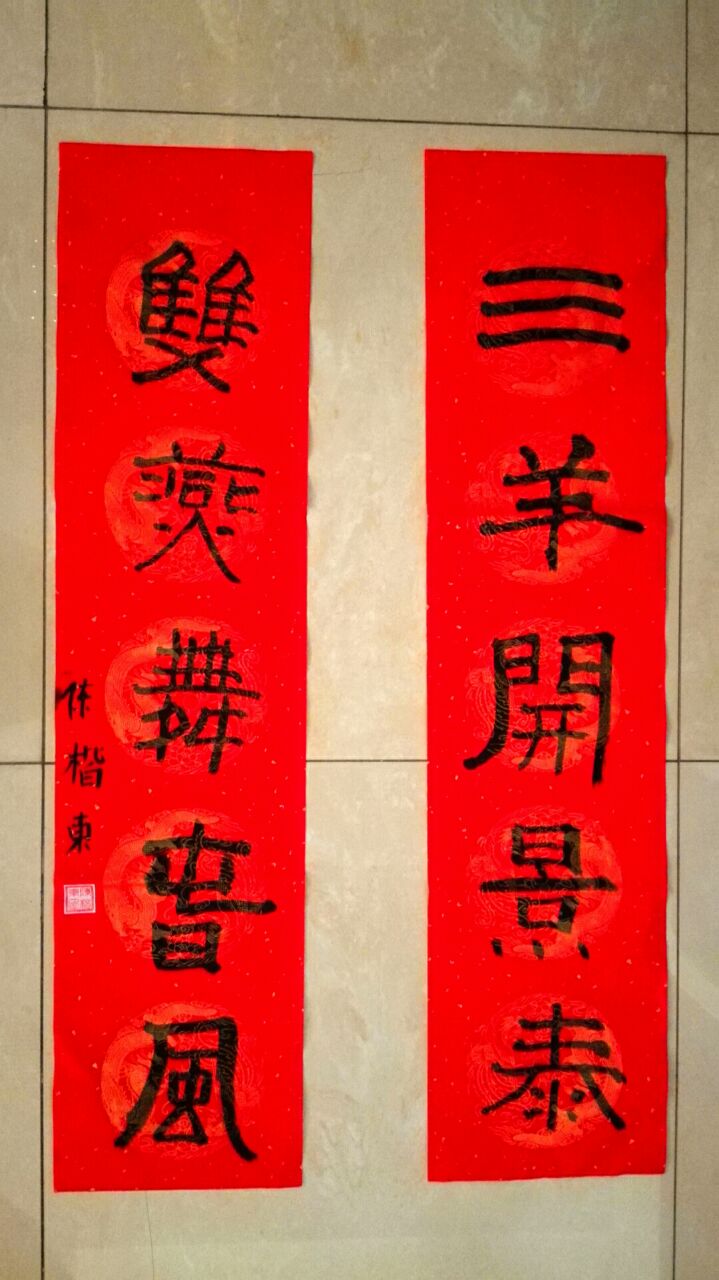 三羊開景泰
雙燕舞旾風
陈楷東